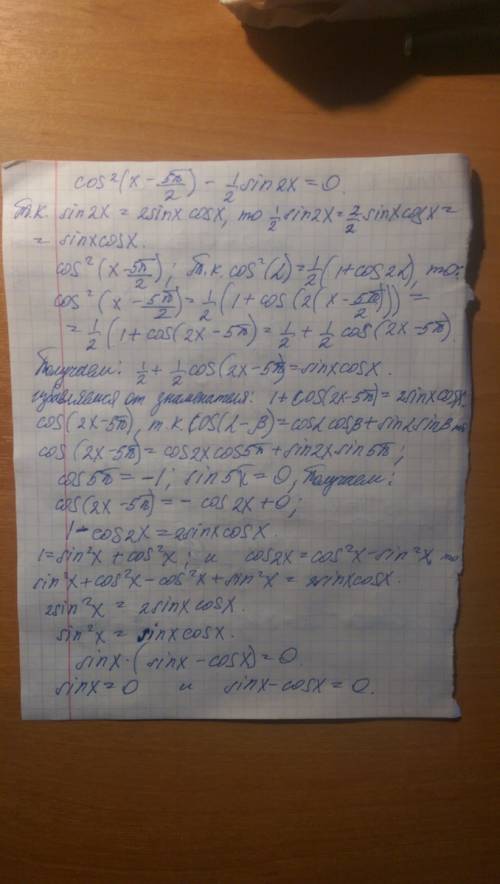 cos²(x - 5π/2) - 1/2 sin2x = 0.
Т.к. sin2x = 2sinx cosx, то 1/2 sin2x = 2/2 sinx cosx =
= sinx cosx.
cos²(x - 5π/2); Т.к. cos²(L) = 1/2 (1 + cos2L), то:
cos²(x - 5π/2) = 1/2 (1 + cos(2(x - 5π/2))) =
= 1/2 (1 + cos(2x - 5π) = 1/2 + 1/2 cos(2x - 5π).
Получаем: 1/2 + 1/2 cos(2x - 5π) = sinx cosx.
избавляемся от знаменателя: 1 + cos(2x - 5π) = 2sinx cosx.
cos(2x - 5π), т.к. cos(L - β) = cosL cosβ + sinL sinβ то
cos(2x - 5π) = cos2x cos5π + sin2x sin5π;
cos5π = -1; sin5π = 0, Получаем:
cos(2x - 5π) = - cos2x + 0;
1 - cos2x = 2sinx cosx.
1 = sin²x + cos²x; и cos2x = cos²x - sin²x, то
sin²x + cos²x - cos²x + sin²x = 2sinx cosx.
2sin²x = 2sinx cosx.
sin²x = sinx cosx.
sinx · (sinx - cosx) = 0.
sinx = 0 и sinx - cosx = 0.